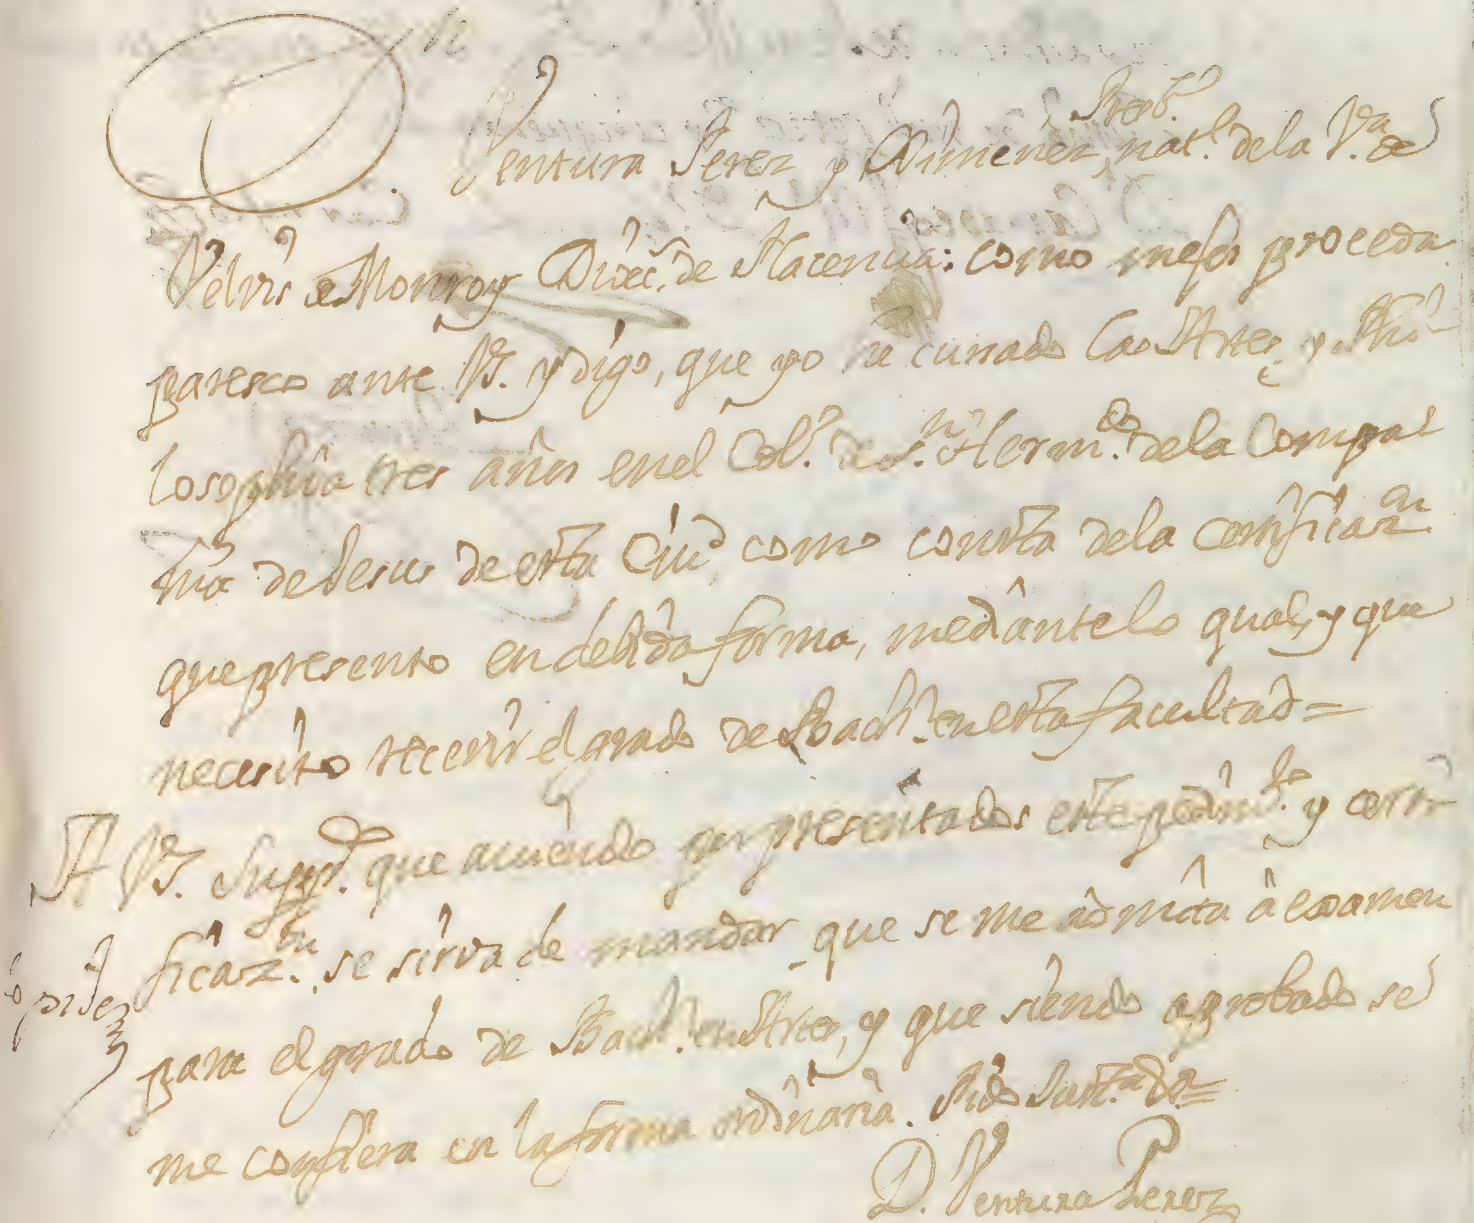 Presb.º
Ventura Perez y Ximenez, nat.l de la V.a de
Velvis de Monroy Dioec. de Placencia: como mejor proceda
paresco ante VS. y digo, que yo he cursado las Artes, y Phi
losophia tres años en el Col.º de S.n Herm.do de la Compa
ñia de Jesus de esta Ciud, como consta de la certificaz.on
que presento en debida forma, mediante lo qual, y que
necesito recevir el grado de Bach.r en esta facultad =
A VS. Supp.co que aviendo por presentados este pedim.to y certi
ficaz.on, se sirva de mandar que se me admita â examen
para el grado de Bach.r en Artes, y que siendo aprobado se
me confiera en la forma ordinaria. Pido Just.a &.a =
D. Ventura Perez
pide